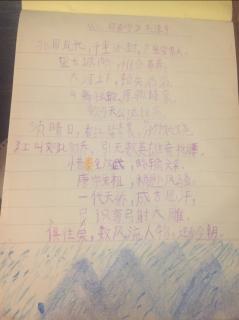 北国风光，千里冰封，万里雪飘
大河上下，顿失滔滔
欲与天公试比高
须晴日，看红装素裹，分外妖娆
江山如此多娇，引无数英雄竞折腰
惜秦皇汉武，略输文采
唐宗宋祖，稍逊风骚
一代天骄，成吉思汗
只识弯弓射大雕
俱往矣，数风流人物，还看今朝